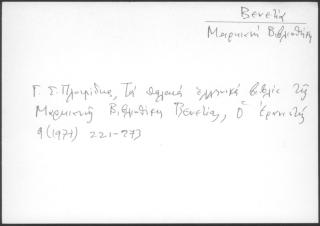 Βενετία
Μαρκιανή Βιβλιοθήκη
Γ. Σ. Πλουμίδης, Τά παλαιά ἑλληνικά βιβλία τῆς
Μαρκιανῆς Βιβλιοθήκης Βενετίας, Ὁ Ἐρανιστής
9 (1971) 221-273